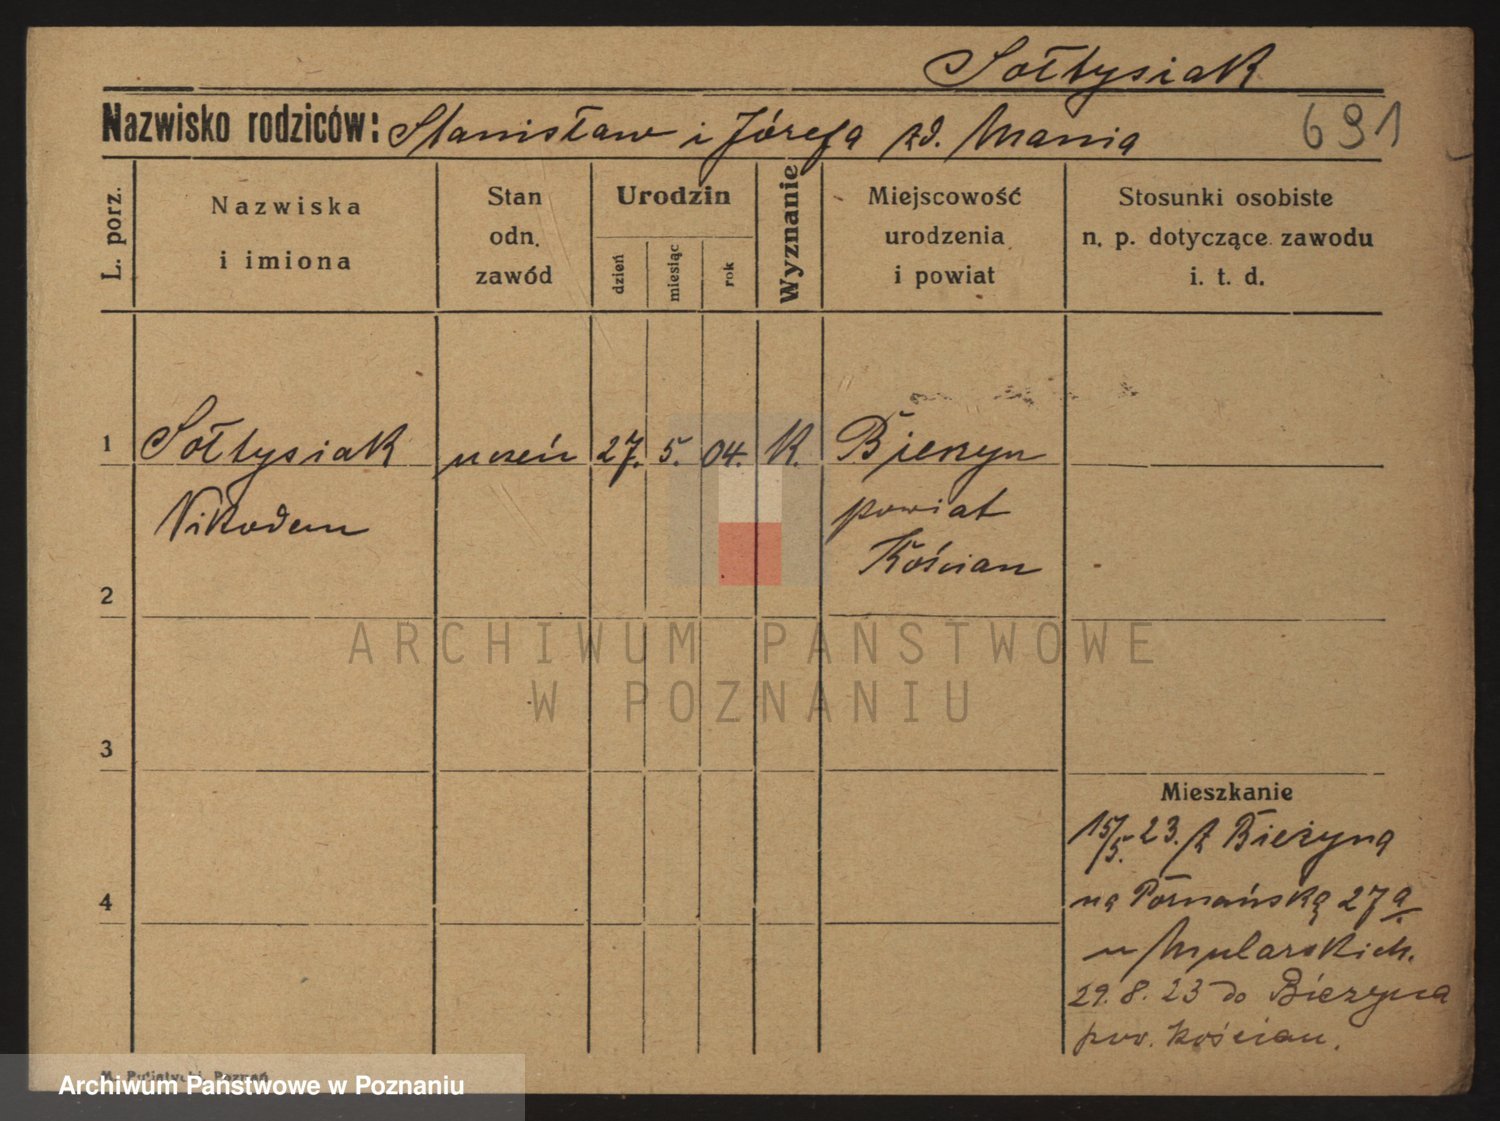 Sołtysiak
Nazwisko rodziców: Stanisław i Józefa zd. Mania
691
L. porz.
Nazwiska
i imiona
Stan
odn.
zawód
Urodzin
dzień
miesiąc
rok
Wyznanie
Miejscowość
urodzenia
i powiat
Stosunki osobiste
n. p. dotyczące zawodu
i. t. d.
1 Sołtysiak uczeń 27. 5. 04. K. Bieżyn
Nikodem powiat
Kościan
2
3
4
Mieszkanie
15/5. 23. z Bieżyna
na Poznańską 27a
u Mularskich.
29. 8. 23 do Bieżyna
pow. Kościan.
ARCHIWUM PAŃSTWOWE
W POZNANIU
Poznań
Archiwum Państwowe w Poznaniu